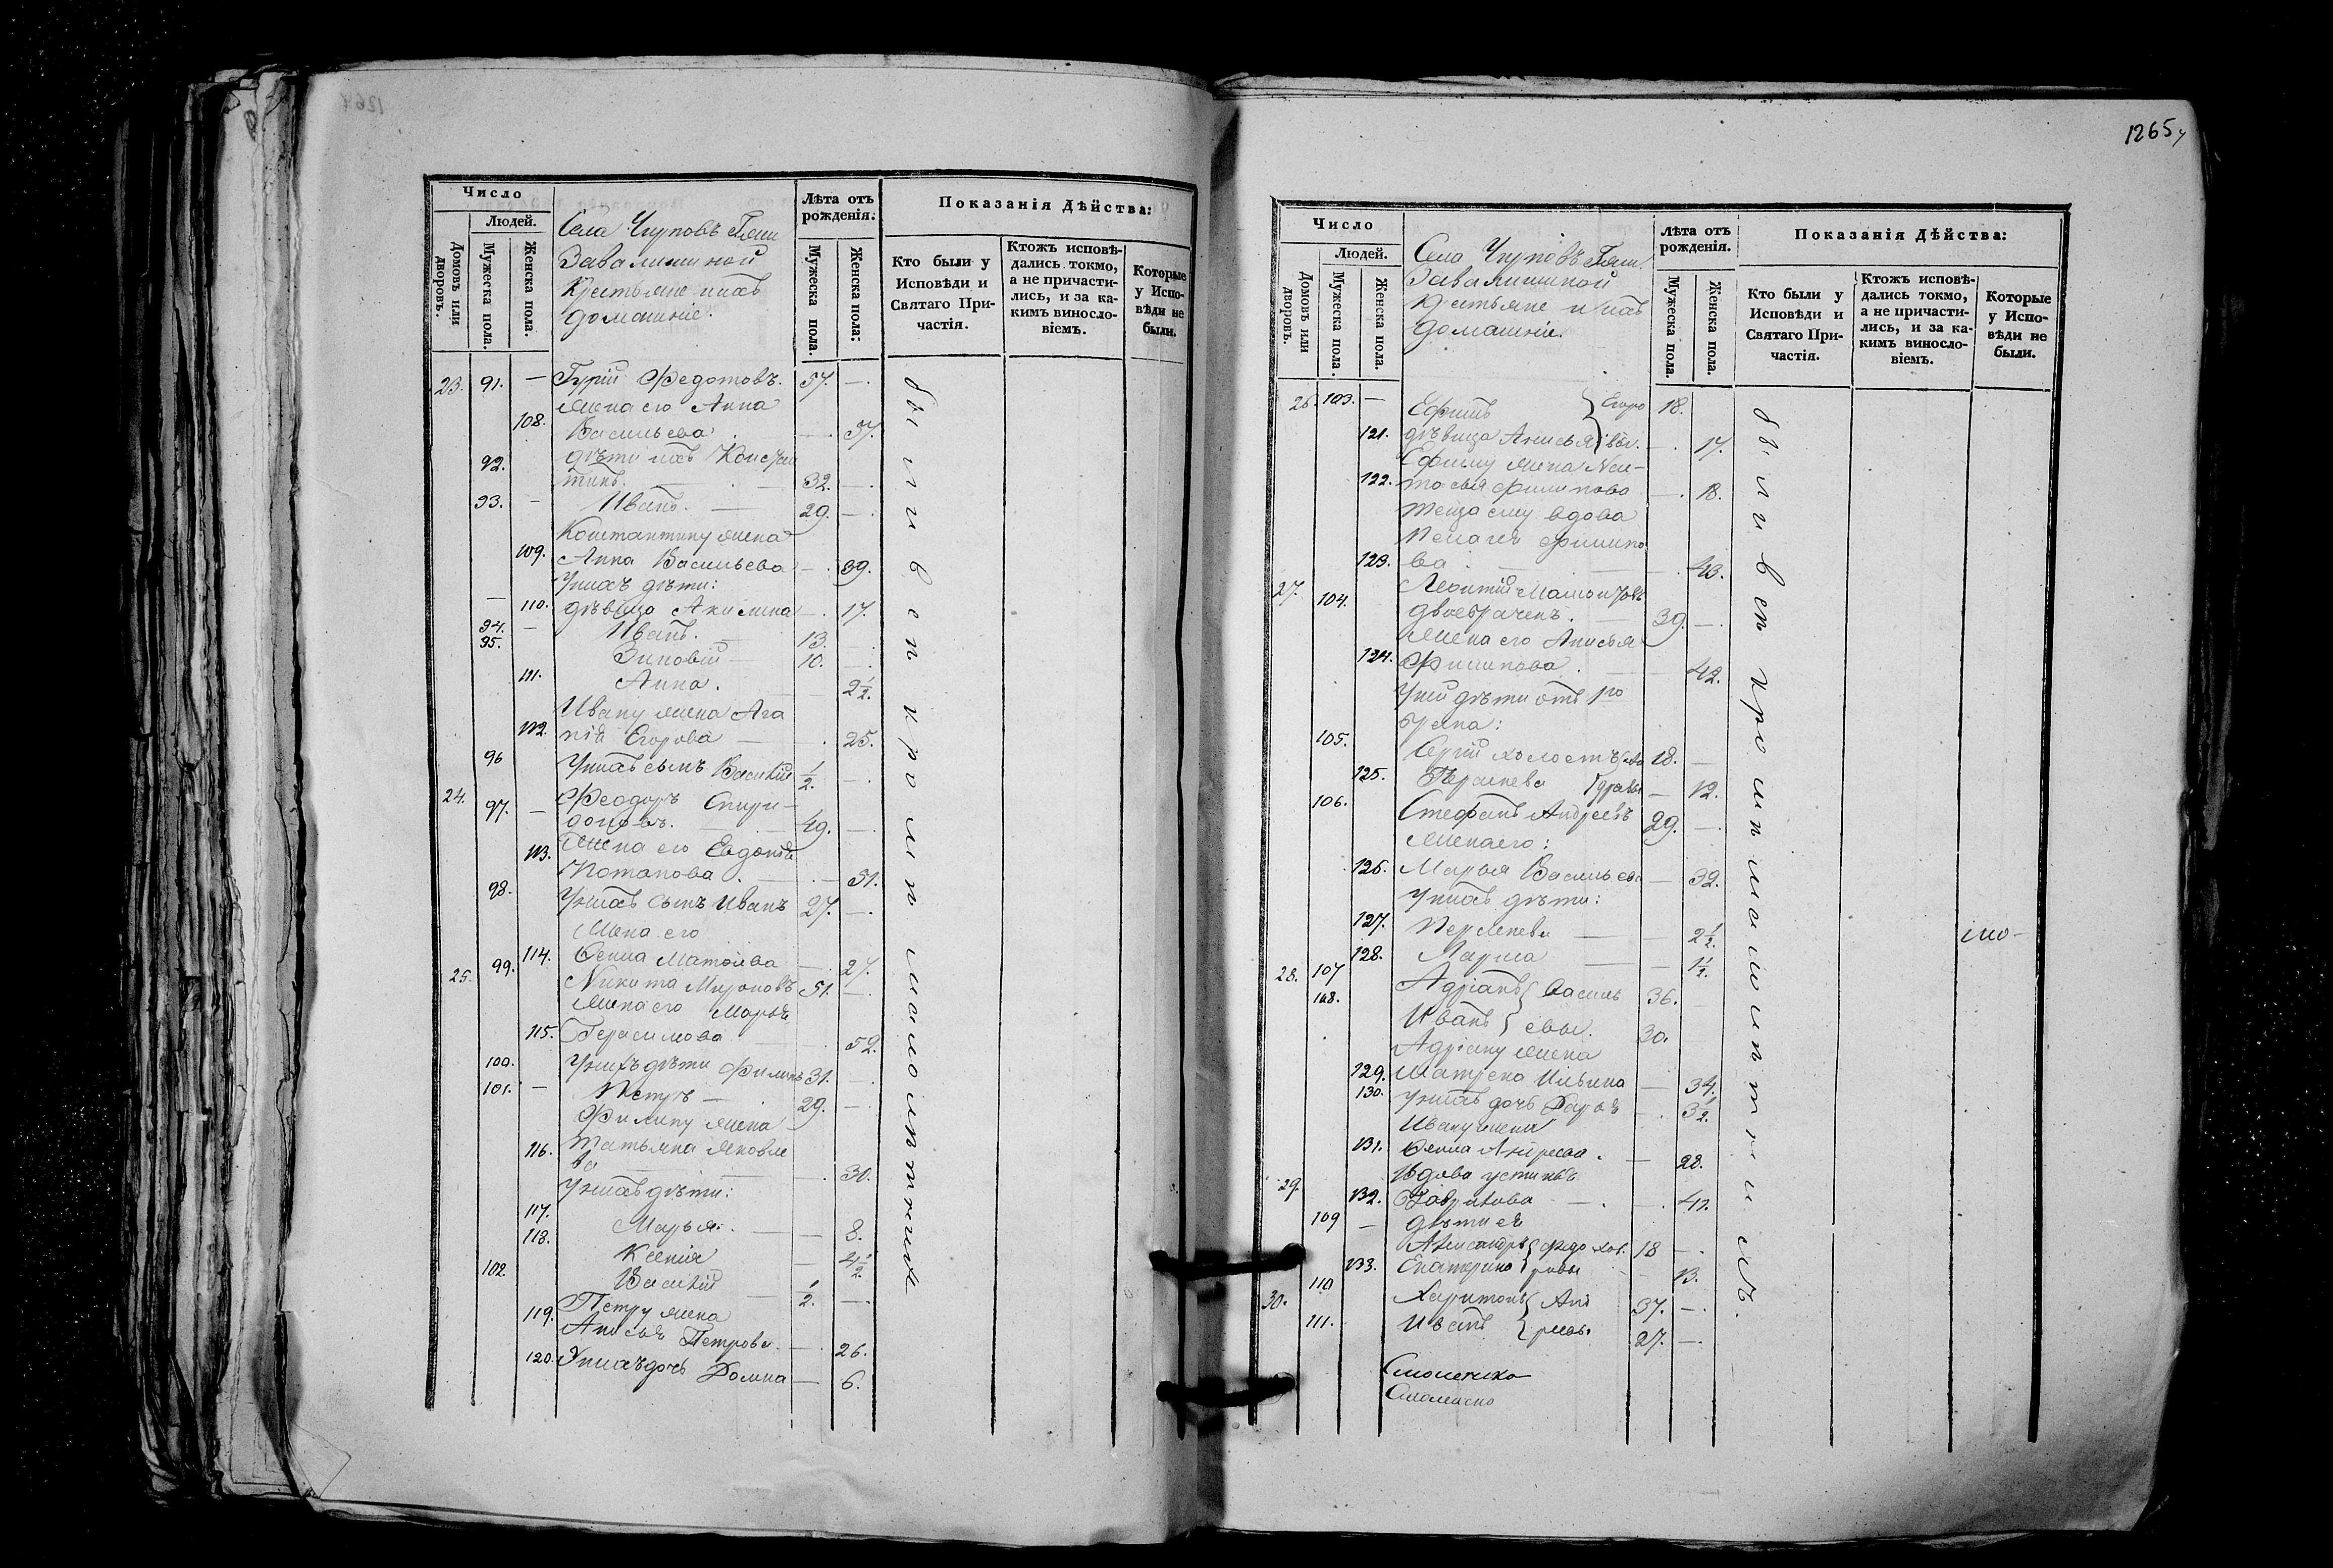 Число
Людей.
Домовъ или дворовъ.
Мужеска пола.
Женска пола.
Села Чуповъ Гжи
Завалишиной
Крестьяне ихъ
домашніе.
Лѣта отъ рожденія.
Мужеска пола.
Женска пола.
Показанія Дѣйства:
Кто были у Исповѣди и Святаго Причастія.
Ктожъ исповѣдались токмо, а не причастились, и за какимъ винословіемъ.
Которые у Исповѣди не были.
23. 91. — Гурій Федотовъ. 57. —
жена его Анна
108. Васильева — 57.
92. дѣти ихъ Констан
тинъ. 32. —
93. — Иванъ. — 29. —
Константину жена
109. Анна Васильева — 39.
У нихъ дѣти:
— 110. дѣвица Акилина — 17.
94. — Иванъ. 13. —
95. Зиновій 10. —
111. Анна. — 2½.
Ивану жена Ага
112. пія Егорова — 25.
96 У нихъ сынъ Василій ½. —
24. 97. — Феодоръ Спири-
доновъ. 49. —
Жена его Евдокія
113. Потапова. — 51.
98. У нихъ сынъ Иванъ 27. —
Жена его
114. Ксенія — 27.
25. 99. Никита Мироновъ 51. —
Жена его Марья
115. Герасимова 52.
100. У нихъ дѣти Филипъ 31. —
101. — Петръ — 29. —
Филипу жена
116. Татьяна Яковле
ва — 30.
У нихъ дѣти:
117. Марья. — 8.
118. Ксенія — 4½
102. Василій — ½. —
Петру жена
119. Анисья Петрова. — 26.
120. У нихъ дочь Домна — 6.
были всѣ кромѣ малолѣтнихъ
1265
Число
Людей.
Домовъ или дворовъ.
Мужеска пола.
Женска пола.
Села Чуповъ Гжи
Завалишиной
Крестьяне и ихъ
домашніе.
Лѣта отъ рожденія.
Мужеска пола.
Женска пола.
Показанія Дѣйства:
Кто были у Исповѣди и Святаго Причастія.
Ктожъ исповѣдались токмо, а не причастились, и за какимъ винословіемъ.
Которые у Исповѣди не были.
26. 103. — Ефимъ } Егоро 18.
121. дѣвица Анисья } вы. — 17.
Ефиму жена
122. Филипова — 18.
теща ему вдова
Пелагея Филипо
123. ва — 43.
27. 104. Леонтій
двоебраченъ. 39. —
жена его Анисья
124. Филипова. — 42.
У ней дѣти отъ 1го
брака:
105. Сергій холостъ 18. —
125. — 12.
106. Стефанъ Андреевъ 29. —
жена его:
126. Марья Васильева — 32.
У нихъ дѣти:
127. — 2½.
128. Марья — 1½.
28. 107 Адріанъ } Василь 36. —
108. Иванъ } евы. 30.
Адріану жена
129. Матрена Ильина — 34.
130. У нихъ дочь Дарья — 3½.
Ивану жена
131. Ксенія Андреева. — 28.
29. Вдова Устинья
132. — 41.
109 — дѣти ея
Александръ } Федо хол. 18 —
133. Екатерина } ровы — 13.
30. 110 Харитонъ } Анд 37. —
111. Иванъ } реевы 27. —
были всѣ кромѣ малолѣтнихъ